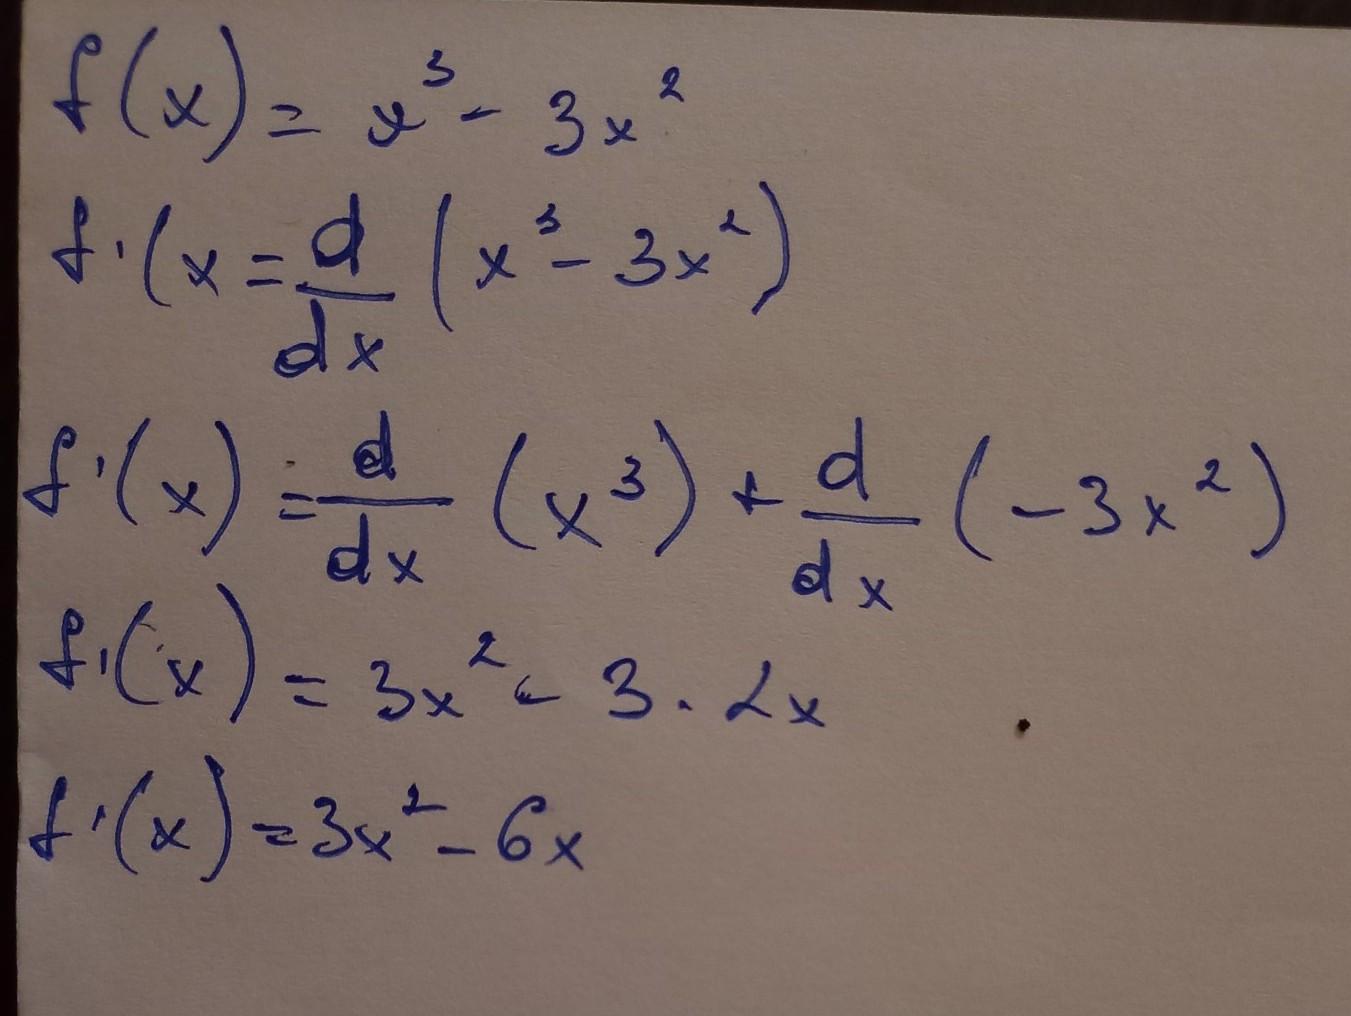 f(x) = x³ - 3x²
f'(x = d/dx (x³ - 3x²)
f'(x) = d/dx (x³) + d/dx (-3x²)
f'(x) = 3x² - 3 · 2x
f'(x) = 3x² - 6x